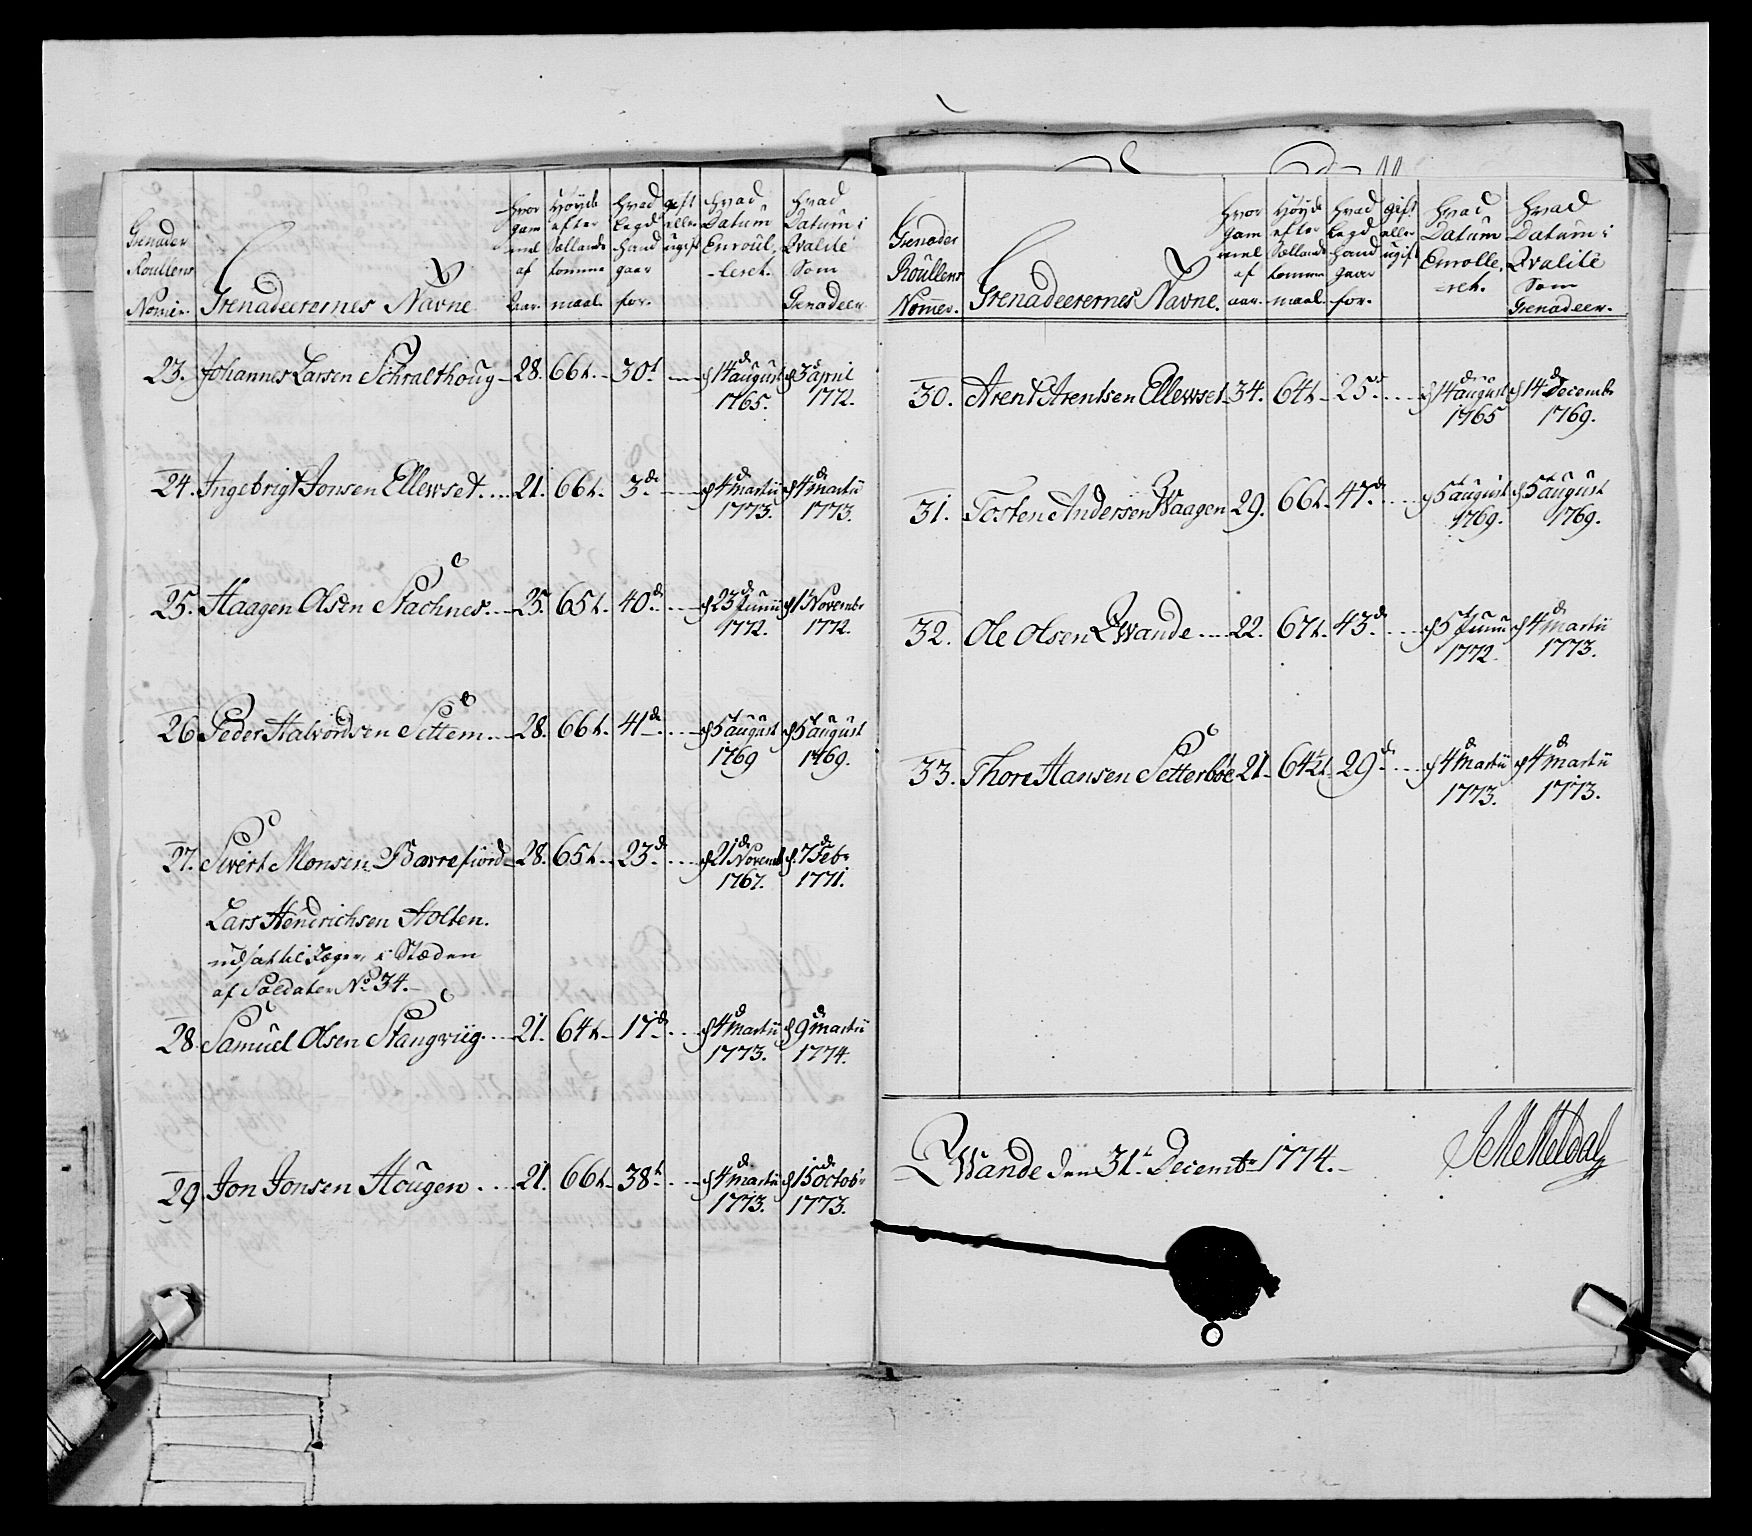 Grenader
Roullens
Nomer.
Grenadeerernes Navne
Hvor
gam
mel
af
Aar.
Høyde
efter
Siellands
tomme
maal
Hvad
Legd
Hand
gaar
for.
gift
eller
ugift
Hvad
Datum
Enroul
leret.
Hvad
Datum i
Qvalité
Som
Grenadeer
23. Johannes Larsen Schralthoug 28. 66t. 30t d 14d august d 3d april
1765. 1772.
24. Ingebrigt Jonsen Ellewset 21. 66t. 3de d 4d Martii d 4d Martii
1773. 1773.
25. Haagen Olsen Stachnes 25. 65t. 40d d 23d Junii d 1t Novembr
1772. 1772.
26 Peder Halvordsen Settem 28. 66t. 41de d 5t august d 5t august
1769 1769.
27. Sivert Monsen Bævrefiord 28. 65t. 23d d 21d Novemb d. 7d Febr
1767. 1771.
Lars Hendrichsen Holten.
udsat til Jæger, i Stæden
af Soldater No 34.
28. Samuel Olsen Stangviig 21. 64t 17d d 4d Martii d 9d Martii
1773. 1774.
29 Jon Jonsen Hougen 21. 66t 38t d 4d Martii d 15d octobr
1773. 1773.
Grenader
Roullens
Nomer.
Grenadeerernes Navne.
Hvor
gam
mel
af
aar.
Høyde
efter
Siellands
tomme
maal
Hvad
Legd
Hand
gaar
for.
gift
eller
ugift
Hvad
Datum
Enrolle
ret.
Hvad
Datum i
Qvalité
Som
Grenadeer.
30. Arent Arentsen Ellewset 34. 64t 25de d 14d august d 14d Decembr
1765 1769.
31. Tosten Andersen Waagen 29. 66t. 47d d 5t august d 5t august
1769. 1769.
32. Ole Olsen Qwande 22. 67t. 43d d 5t Junii d 4d Martii
1772. 1773.
33. Thore Hansen Setterbøe 21 64½t 29d d 4d Martii d 4d Martii
1773. 1773.
Qwande den 31t Decembr 1774.